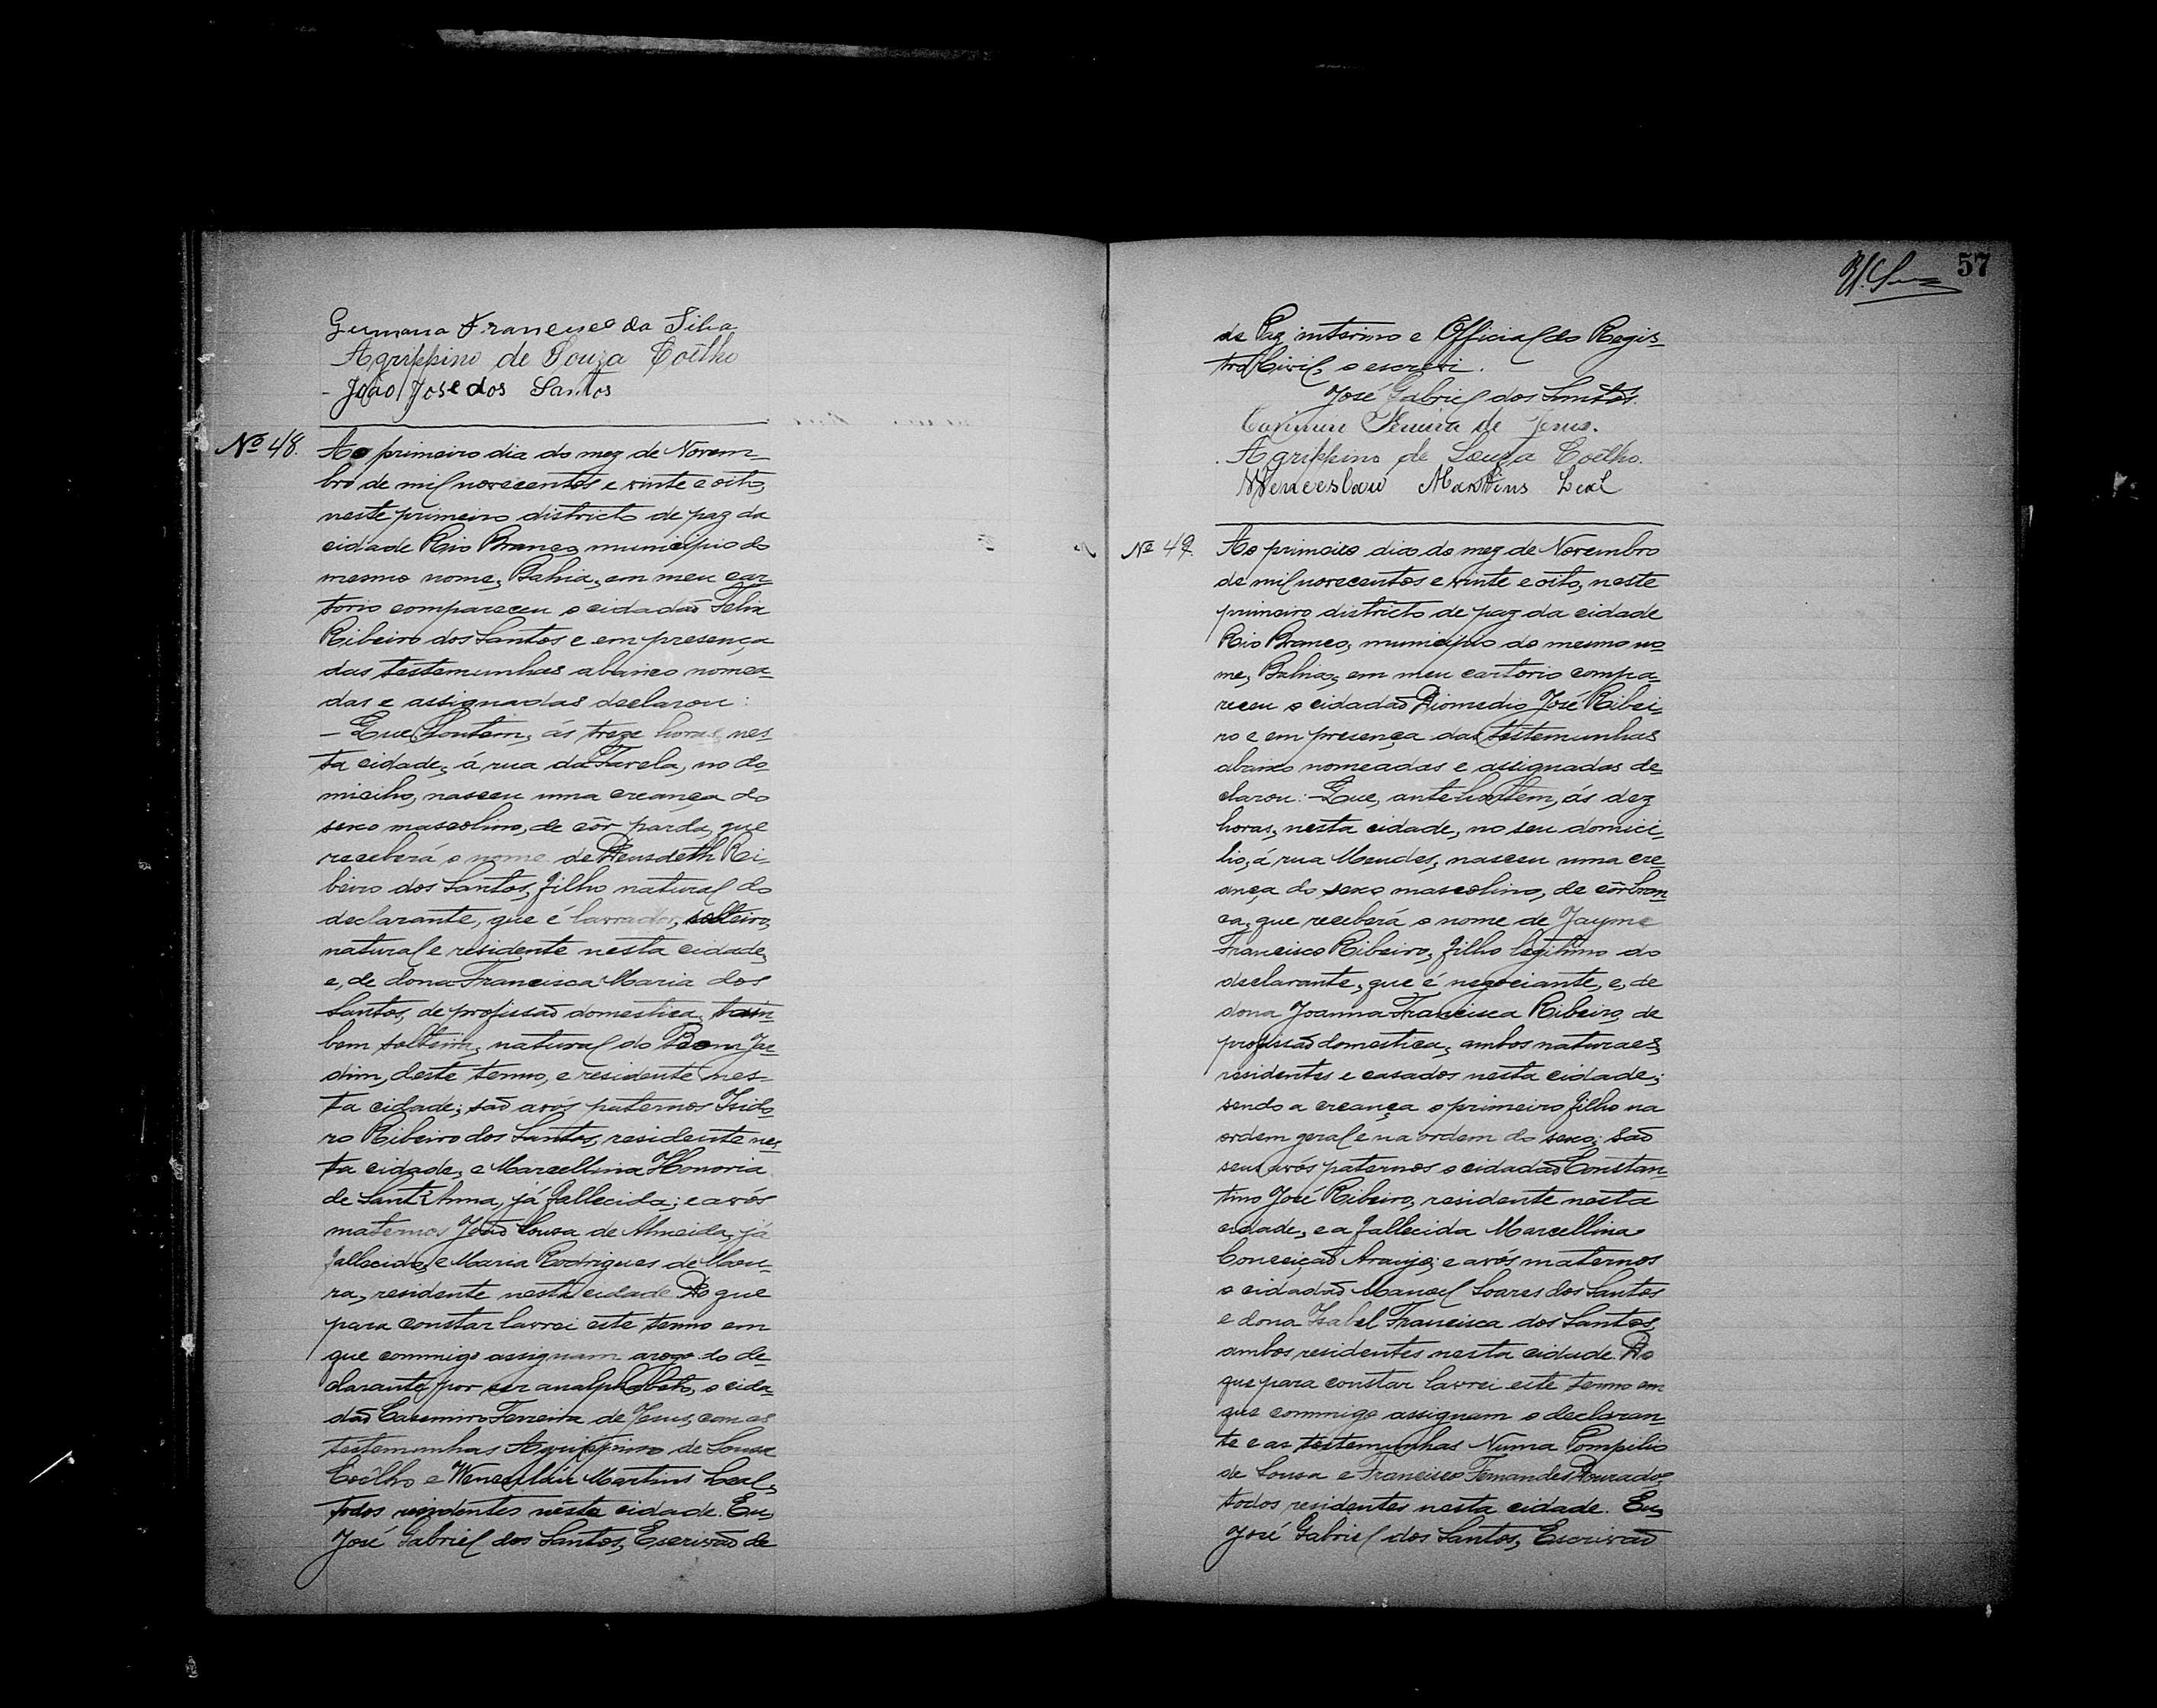 Germana Francisco da Silva
Agrippino de Souza Coêlho
- João José dos Santos
Nº 48. Ao primeiro dia do mez de Novem-
bro de mil novecentos e vinte e oito,
neste primeiro districto de paz da
cidade Rio Branco, municipio do
mesmo nome, Bahia, em meu car-
torio compareceu o cidadão Felix
Ribeiro dos Santos e em presença
das testemunhas abaixo nomea-
das e assignadas declarou:
- Que, hontem, ás treze horas, nes-
ta cidade, á rua da Favela, no do-
micilio, nasceu uma creança do
sexo mascolino, de côr parda, que
receberá o nome de Deusdeth Ri-
beiro dos Santos, filho natural do
declarante, que é lavrador, solteiro,
natural e residente nesta cidade,
e, de dona Francisca Maria dos
Santos, de profissão domestica, tam-
bem solteira, natural do Bom Jar-
dim, deste termo, e residente nes-
ta cidade; são avós paternos Izido-
ro Ribeiro dos Santos, residente nes-
ta cidade, e Marcellina Honoria
de Sant'Anna, já fallecida; e avós
maternos João Sousa de Almeida, já
fallecido, e Maria Rodrigues de Mou-
ra, residente nesta cidade. Do que
para constar lavrei este termo em
que commigo assignam arogo do de-
clarante, por ser analphabeto, o cida-
dão Casemiro Ferreira de Jesus, com as
testemunhas Agrippino de Sousa
Coêlho e Wenceslau Martins Leal,
todos residentes nesta cidade. Eu,
José Gabriel dos Santos, Escrivão de
57
de Paz interino e Official do Regis-
tro Civil, o escrevi.
José Gabriel dos Santos.
Casimiro Ferreira de Jesus.
Agrippino de Souza Coêlho.
Wenceslau Martins Leal
Nº 49. Ao primeiro dia do mez de Novembro
de mil novecentos e vinte e oito, neste
primeiro districto de paz da cidade
Rio Branco, municipio do mesmo no-
me, Bahia, em meu cartorio compa-
receu o cidadão Diomedio José Ribei-
ro e em presença das testemunhas
abaixo nomeadas e assignadas de-
clarou: - Que, antehontem, ás dez
horas, nesta cidade, no seu domici-
lio, á rua Mendes, nasceu uma cre-
ança do sexo mascolino, de côr bran-
ca, que receberá o nome de Jayme
Francisco Ribeiro, filho legitimo do
declarante, que é negociante, e, de
dona Joanna Francisca Ribeiro, de
profissão domestica, ambos naturaes,
residentes e casados nesta cidade;
sendo a creança o primeiro filho na
ordem geral e na ordem do sexo; são
seus avós paternos o cidadão Constan-
tino José Ribeiro, residente nesta
cidade, e a fallecida Marcellina
Conceição Araujo; e avós maternos
o cidadão Manoel Soares dos Santos
e dona Izabel Francisca dos Santos,
ambos residentes nesta cidade. Do
que para constar lavrei este termo em
que commigo assignam o declaran-
te e as testemunhas Numa Pompilio
de Sousa e Francisco Fernandes Dourado,
todos residentes nesta cidade. Eu,
José Gabriel dos Santos, Escrivão